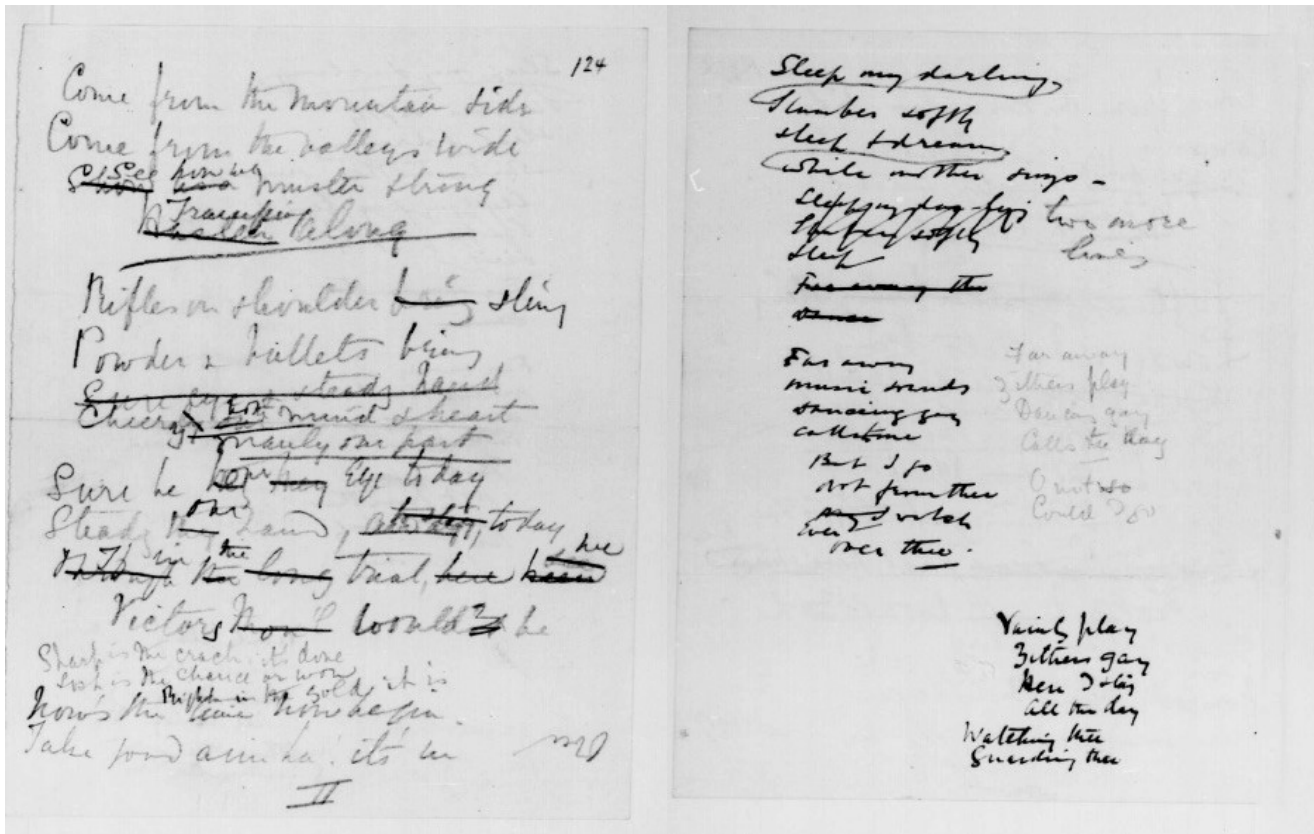 124
Come from the mountain side
Come from the valleys wide
See how we muster strong
Trampling along
Rifles on shoulder sling
Powder & bullets bring
Sure eye & steady hand
Cheery mind & heart
manly our part
Sure be our eye today
Steady our hand, today
in the trial,
Victors would be
Sharp is the crack, it's done
Lost is the chance or won
Right in the gold it is
Now's the time now begin
Take good aim ha! it's in
II
Sleep my darling,
Slumber softly
sleep & dream
while mother sings -
two more
lines
Slumber softly
Sleep
Far away the
Dance
Far away
music sounds
dancing gay
calls to me
But I go
not from thee
watch
over thee.
Far away
Zithers play
Dancing gay
Calls the day
O not so
Could I go
Vainly play
Zithers gay
Here I stay
All the day
Watching thee
Guarding thee